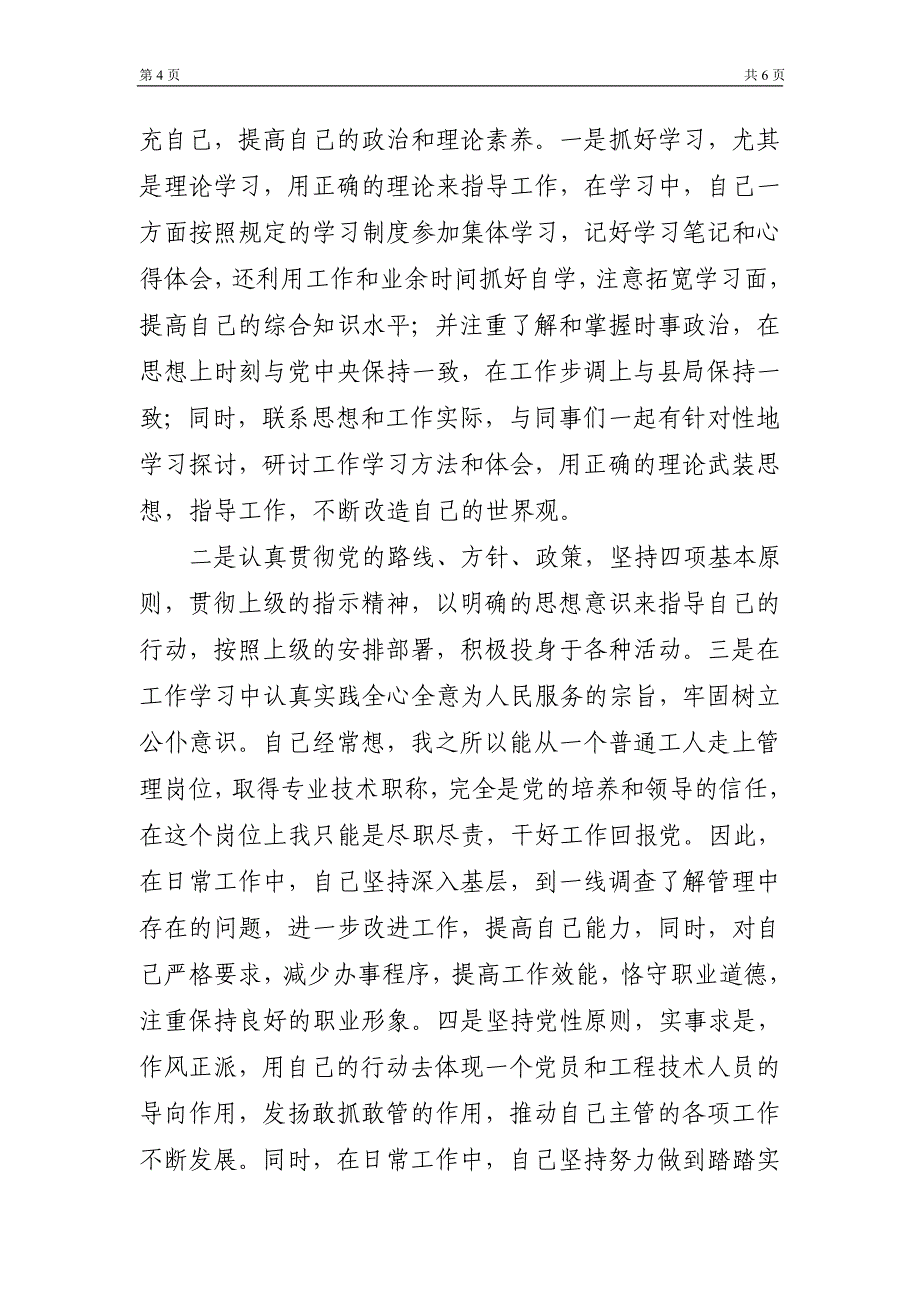 第 4 页
共 6 页
充自己，提高自己的政治和理论素养。一是抓好学习，尤其
是理论学习，用正确的理论来指导工作，在学习中，自己一
方面按照规定的学习制度参加集体学习，记好学习笔记和心
得体会，还利用工作和业余时间抓好自学，注意拓宽学习面，
提高自己的综合知识水平；并注重了解和掌握时事政治，在
思想上时刻与党中央保持一致，在工作步调上与县局保持一
致；同时，联系思想和工作实际，与同事们一起有针对性地
学习探讨，研讨工作学习方法和体会，用正确的理论武装思
想，指导工作，不断改造自己的世界观。
二是认真贯彻党的路线、方针、政策，坚持四项基本原
则，贯彻上级的指示精神，以明确的思想意识来指导自己的
行动，按照上级的安排部署，积极投身于各种活动。三是在
工作学习中认真实践全心全意为人民服务的宗旨，牢固树立
公仆意识。自己经常想，我之所以能从一个普通工人走上管
理岗位，取得专业技术职称，完全是党的培养和领导的信任，
在这个岗位上我只能是尽职尽责，干好工作回报党。因此，
在日常工作中，自己坚持深入基层，到一线调查了解管理中
存在的问题，进一步改进工作，提高自己能力，同时，对自
己严格要求，减少办事程序，提高工作效能，恪守职业道德，
注重保持良好的职业形象。四是坚持党性原则，实事求是，
作风正派，用自己的行动去体现一个党员和工程技术人员的
导向作用，发扬敢抓敢管的作用，推动自己主管的各项工作
不断发展。同时，在日常工作中，自己坚持努力做到踏踏实